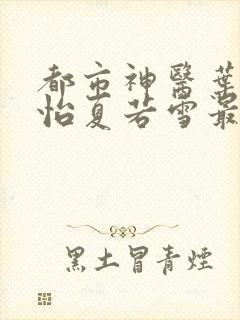 都市神醫葉
怡夏若雪最
黑土冒青煙